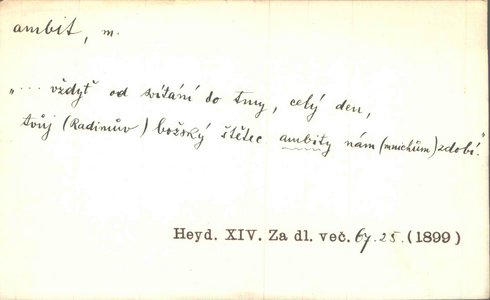 ambit, m.
"... vždyť od svítání do tmy, celý den,
tvůj (Radimův) božský štětec ambity nám (mnichům) zdobí."
Heyd. XIV. Za dl. več. 67.25. (1899)